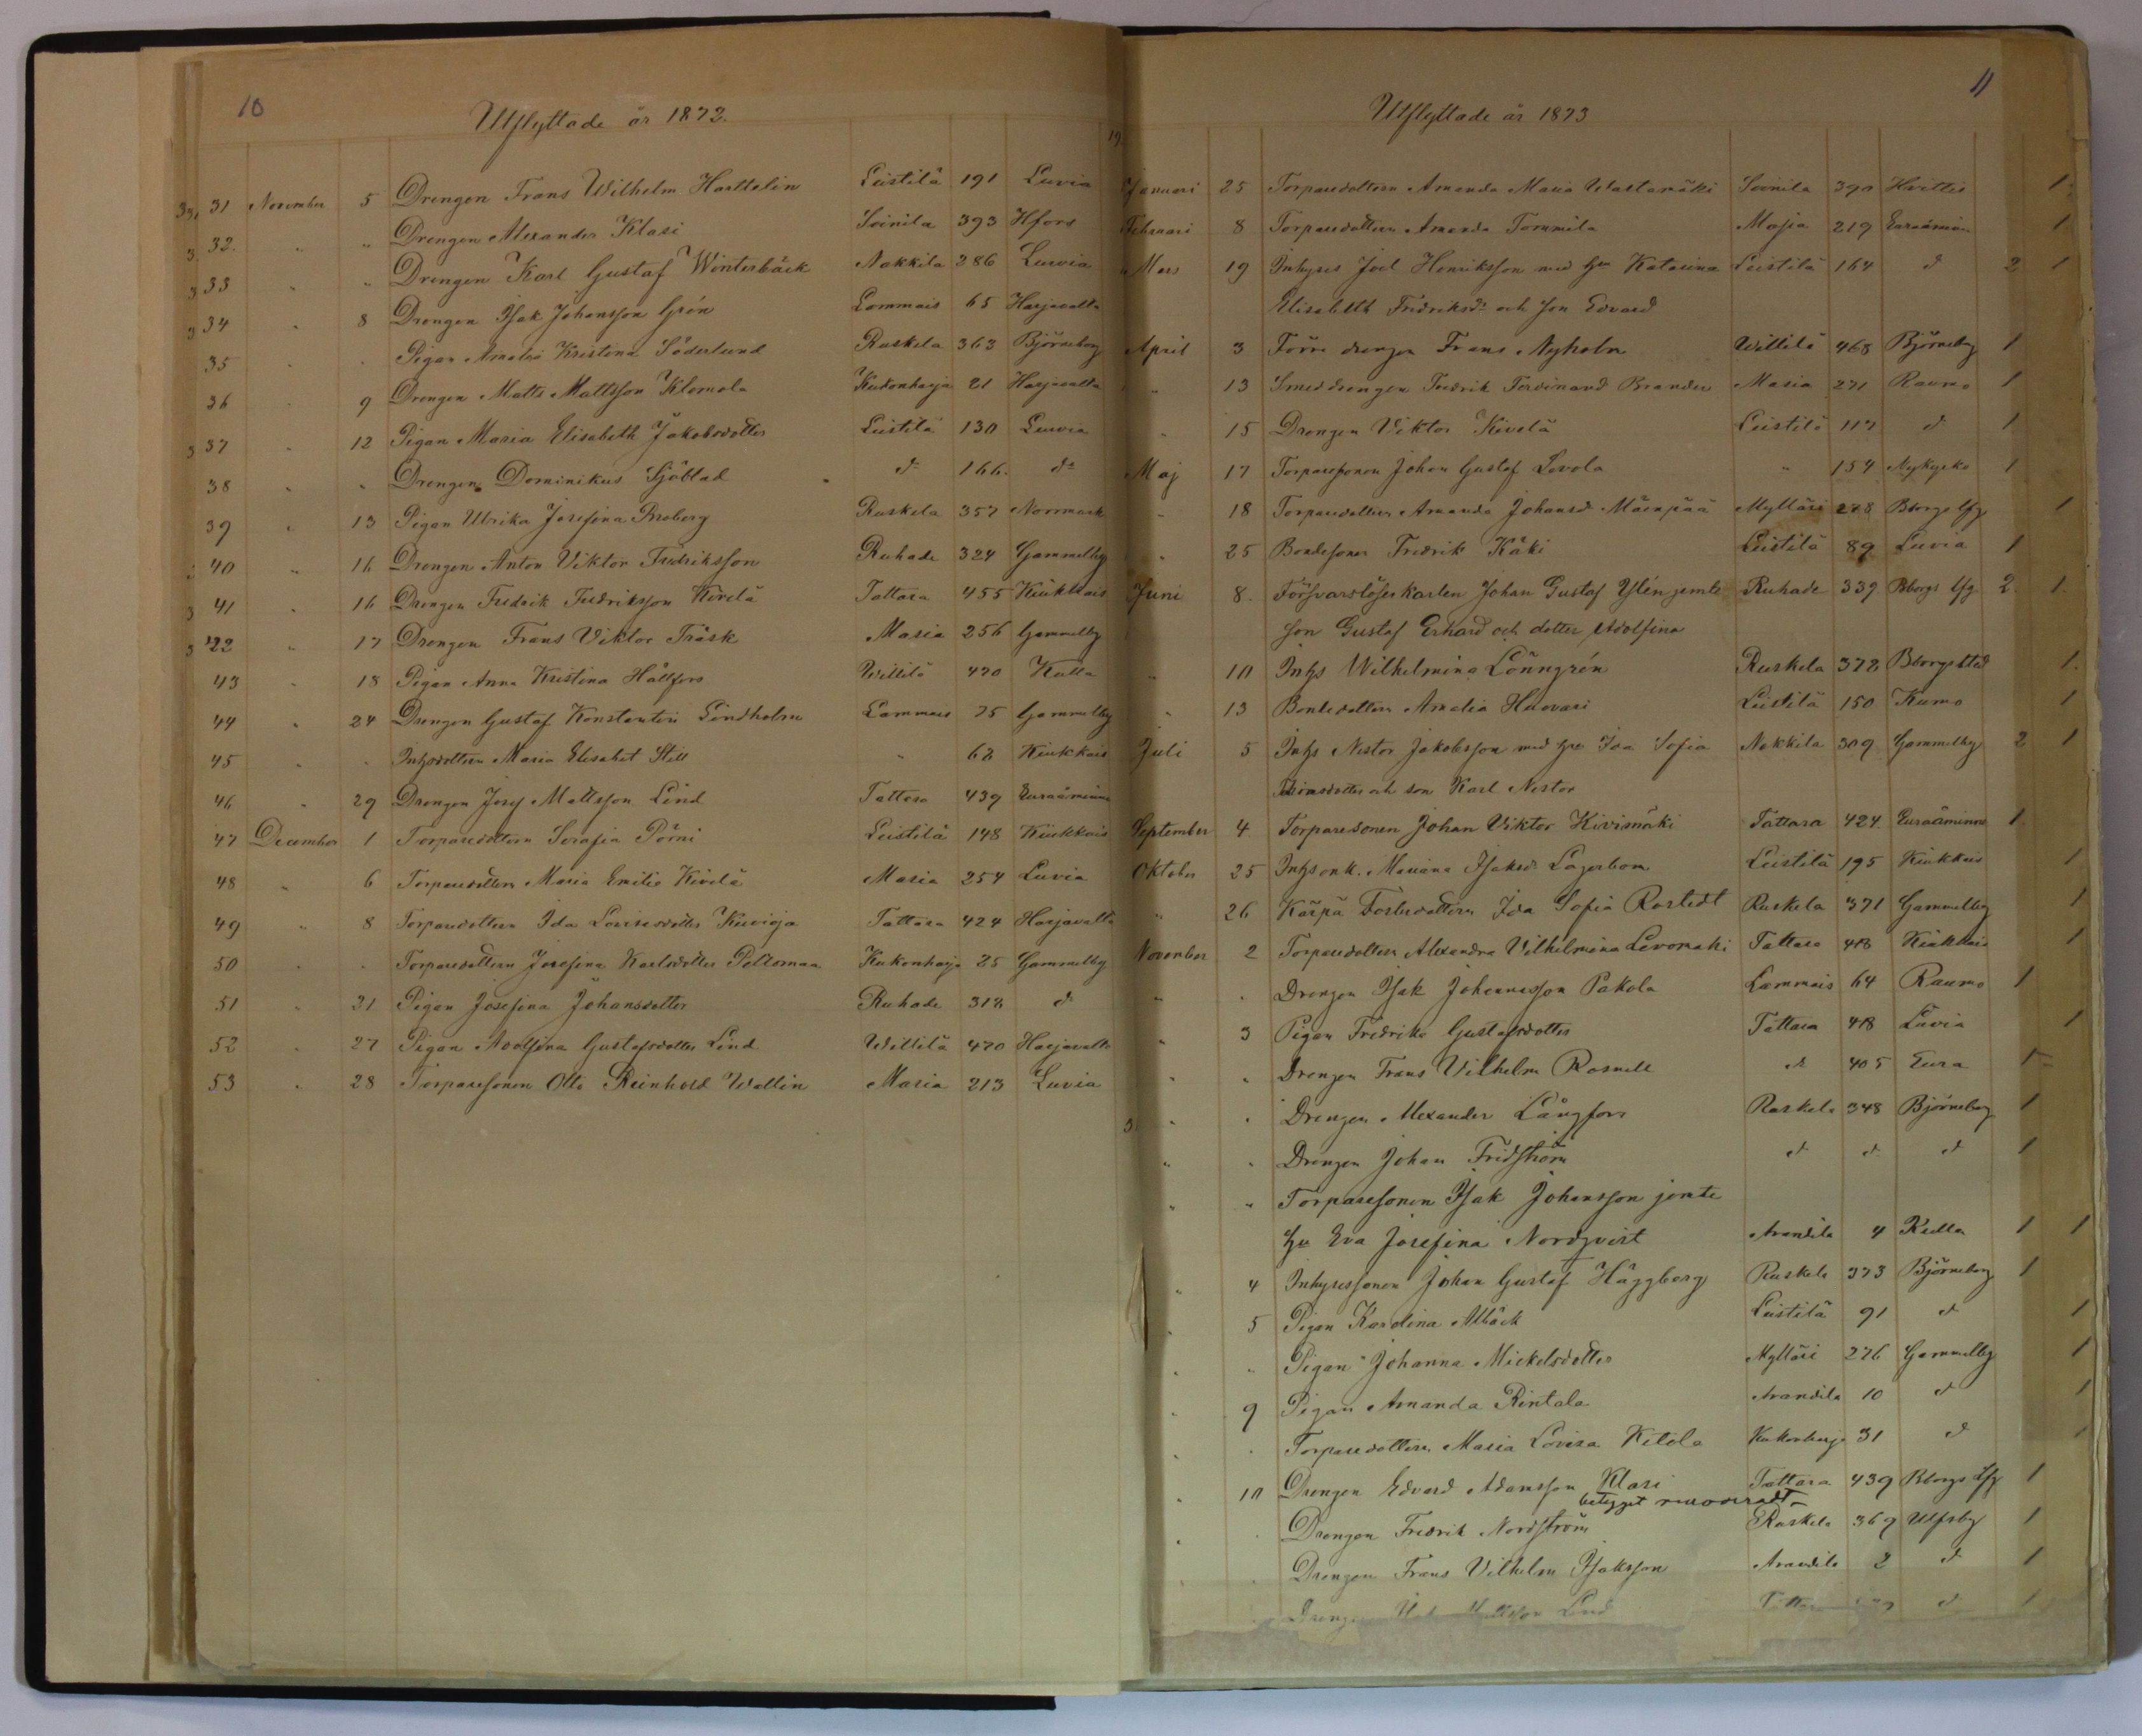 10
Utflyttade år 1872.
31 November 5 Drengen Frans Wilhelm Harttelin Leistilä 191 Luvia
32. " " Drengen Alexander Klasi Soinila 393 Hfors
33 " " Drengen Karl Gustaf Winterbäck Nakkila 286 Luvia
34 " 8 Drengen Isak Johansson Grön Lammais 65 Harjavalta
35 " " Pigan Amalia Kristina Söderlund Ruskela 363 Björneborg
36 " 9 Drengen Matts Mattsson Klemola Kukonharja 21 Harjavalta
37 " 12 Pigan Maria Elisabeth Jakobsdotter Leistilä 130 Luvia
38 " " Drengen Dominikus Sjöblad d:o 166. d:o
39 " 13 Pigan Ulrika Josefina Broberg Ruskela 357 Norrmark
40 " 16 Drengen Anton Viktor Fredriksson Ruhade 324 Gammelby
41 " 16 Drengen Fredrik Fredriksson Kivelä Tattara 455 Kiukkais
22 " 17 Drengen Frans Viktor Träsk Masia 256 Gammelby
43 " 18 Pigan Anna Kristina Hällfors Willilä 470 Kulla
44 " 24 Drengen Gustaf Konstantin Lindholm Lammais 75 Gammelby
45 " " Inhysdottren Maria Elisabet Still " 62 Kiukkais
46 " 29 Drengen Josef Mattsson Lind Tattara 439 Euraåminne
47 December 1 Torparedottren Serafia Pörni Leistilä 148 Kiukkais
48 " 6 Torparedottren Maria Emilia Kivelä Masia 254 Luvia
49 " " 8 Torparedottren Ida Lovisadotter Kuvioja Tattara 424 Harjavalta
50 " " Torparedottren Josefina Karlsdotter Peltomaa Kukonharja 25 Gammelby
51 " 21 Pigan Josefina Johansdotter Ruhade 318 d
52 " 27 Pigan Adolfina Gustafsdotter Lind Willilä 470 Harjavalta
53 " 28 Torparesonen Otto Reinhold Wallin Masia 213 Luvia
11
Utflyttade år 1873
Januari 25 Torparedottren Amanda Maria Wastamäki Soinila 390 Hvittis 1
Februari 8 Torparedottren Amanda Tommila Masia 219 Euraåmin 1
Mars 19 Inhyses Joel Henriksson med hu Katarina Leistilä 164 d 2 1
Elisabeth Fredriksdr och son Edvard
April 3 Förra drengen Frans Nyholm Willilä 468 Björneborg 1
" 13 Smeddrengen Fredrik Ferdinand Brander Masia 271 Raumo 1
" 15 Drengen Viktor Kivelä Leistilä 117 d 1
Maj 17 Torparesonen Johan Gustaf Levola " 154 Nykyrko 1
" 18 Torparedottren Amanda Johansdr Mäenpää Mylläri 278 Bborgs lfg 1
" 25 Bondesonen Fredrik Käki Leistilä 89 Luvia 1
Juni 8. Försvarslöse karlen Johan Gustaf Ylén jemte Ruhade 339 Bborgs lfg 2. 1.
son Gustaf Erhard och dotter Adolfina
" 10 Inhys Wilhelmina Lönngrén Ruskela 372 Bborgs Stad 1.
" 13 Bondedottren Amalia Huovari Leistilä 150 Kumo 1
Juli 5 Inhs Nestor Jakobsson med hu Ida Sofia Nakkila 309 Gammelby 2 1
Tomasdotter och son Karl Nestor
September 4 Torparesonen Johan Viktor Kivimäki Tattara 424. Euraåminne 1
Oktober 25 Inhys enk. Mariana Isaksdr Lagerbom Leistilä 195 Kiukkais 1
" 26 Kärpä Fosterdottren Ida Sofia Rostedt Ruskela 371 Gammelby 1
November 2 Torparedottren Alexandra Vilhelmina Levomäki Tattara 418 Kiukkais 1
" " Drengen Isak Johannesson Pakola Lammais 64 Raumo 1
" 3 Pigan Fredrika Gustafsdotter Tattara 418 Luvia 1
" " Drengen Frans Vilhelm Rosnell d 405 Eura 1
" " Drengen Alexander Långfors Ruskela 348 Björneborg 1
" " Drengen Johan Fridström d d d 1
" " Torparesonen Isak Johansson jemte
hu Eva Josefina Nordqvist Arandila 4 Kulla 1 1
" 4 Inhysessonen Johan Gustaf Häggberg Ruskela 373 Björneborg 1
" 5 Pigan Karolina Allbäck Leistilä 91 d 1
" " Pigan Johanna Mickelsdotter Mylläri 276 Gammelby 1
" 9 Pigan Amanda Rintala Arandila 10 d 1
" " Torparedottren Maria Lovisa Ketola Kukonharja 31 d 1
" 10 Drengen Edvard Adamsson Klasi Tattara 439 Bborgs lfg 1
betyget
" " Drengen Fredrik Nordström Ruskela 369 Ulfsby 1
" " Drengen Frans Vilhelm Isaksson Arandila 2 d 1
Drengen Mattsson Lind Tattara d 1